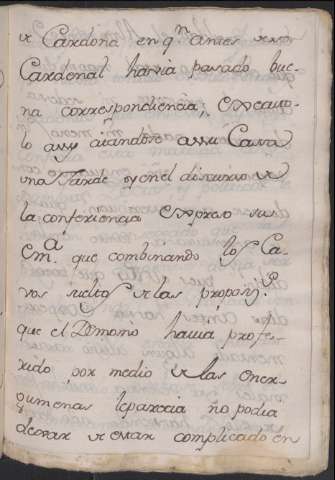 de Cardona en qn. antes de ser
Cardenal havia pasado bue-
na correspondiencia; executo-
lo assy citandose assu Cassa
una tarde y en el discurso de
la conferiencia expreso su
Em.ª que combinando los Ca-
vos sueltos de las proposis.s
que el Demonio havia profe-
rido por medio de las Ener-
gumenas le parecia no podia
dexar de estar complicado en